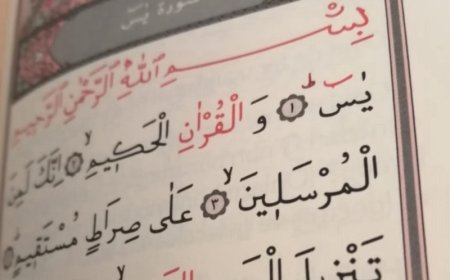 سورة يس
بِسْمِ اللّٰهِ الرَّحْمٰنِ الرَّحٖيمِ
يٰسٓ ﴿١﴾ وَ الْقُرْاٰنِ الْحَكٖيمِۙ ﴿٢﴾ اِنَّكَ لَمِنَ
الْمُرْسَلٖينَۙ ﴿٣﴾ عَلٰى صِرَاطٍ مُسْتَقٖيمٍ